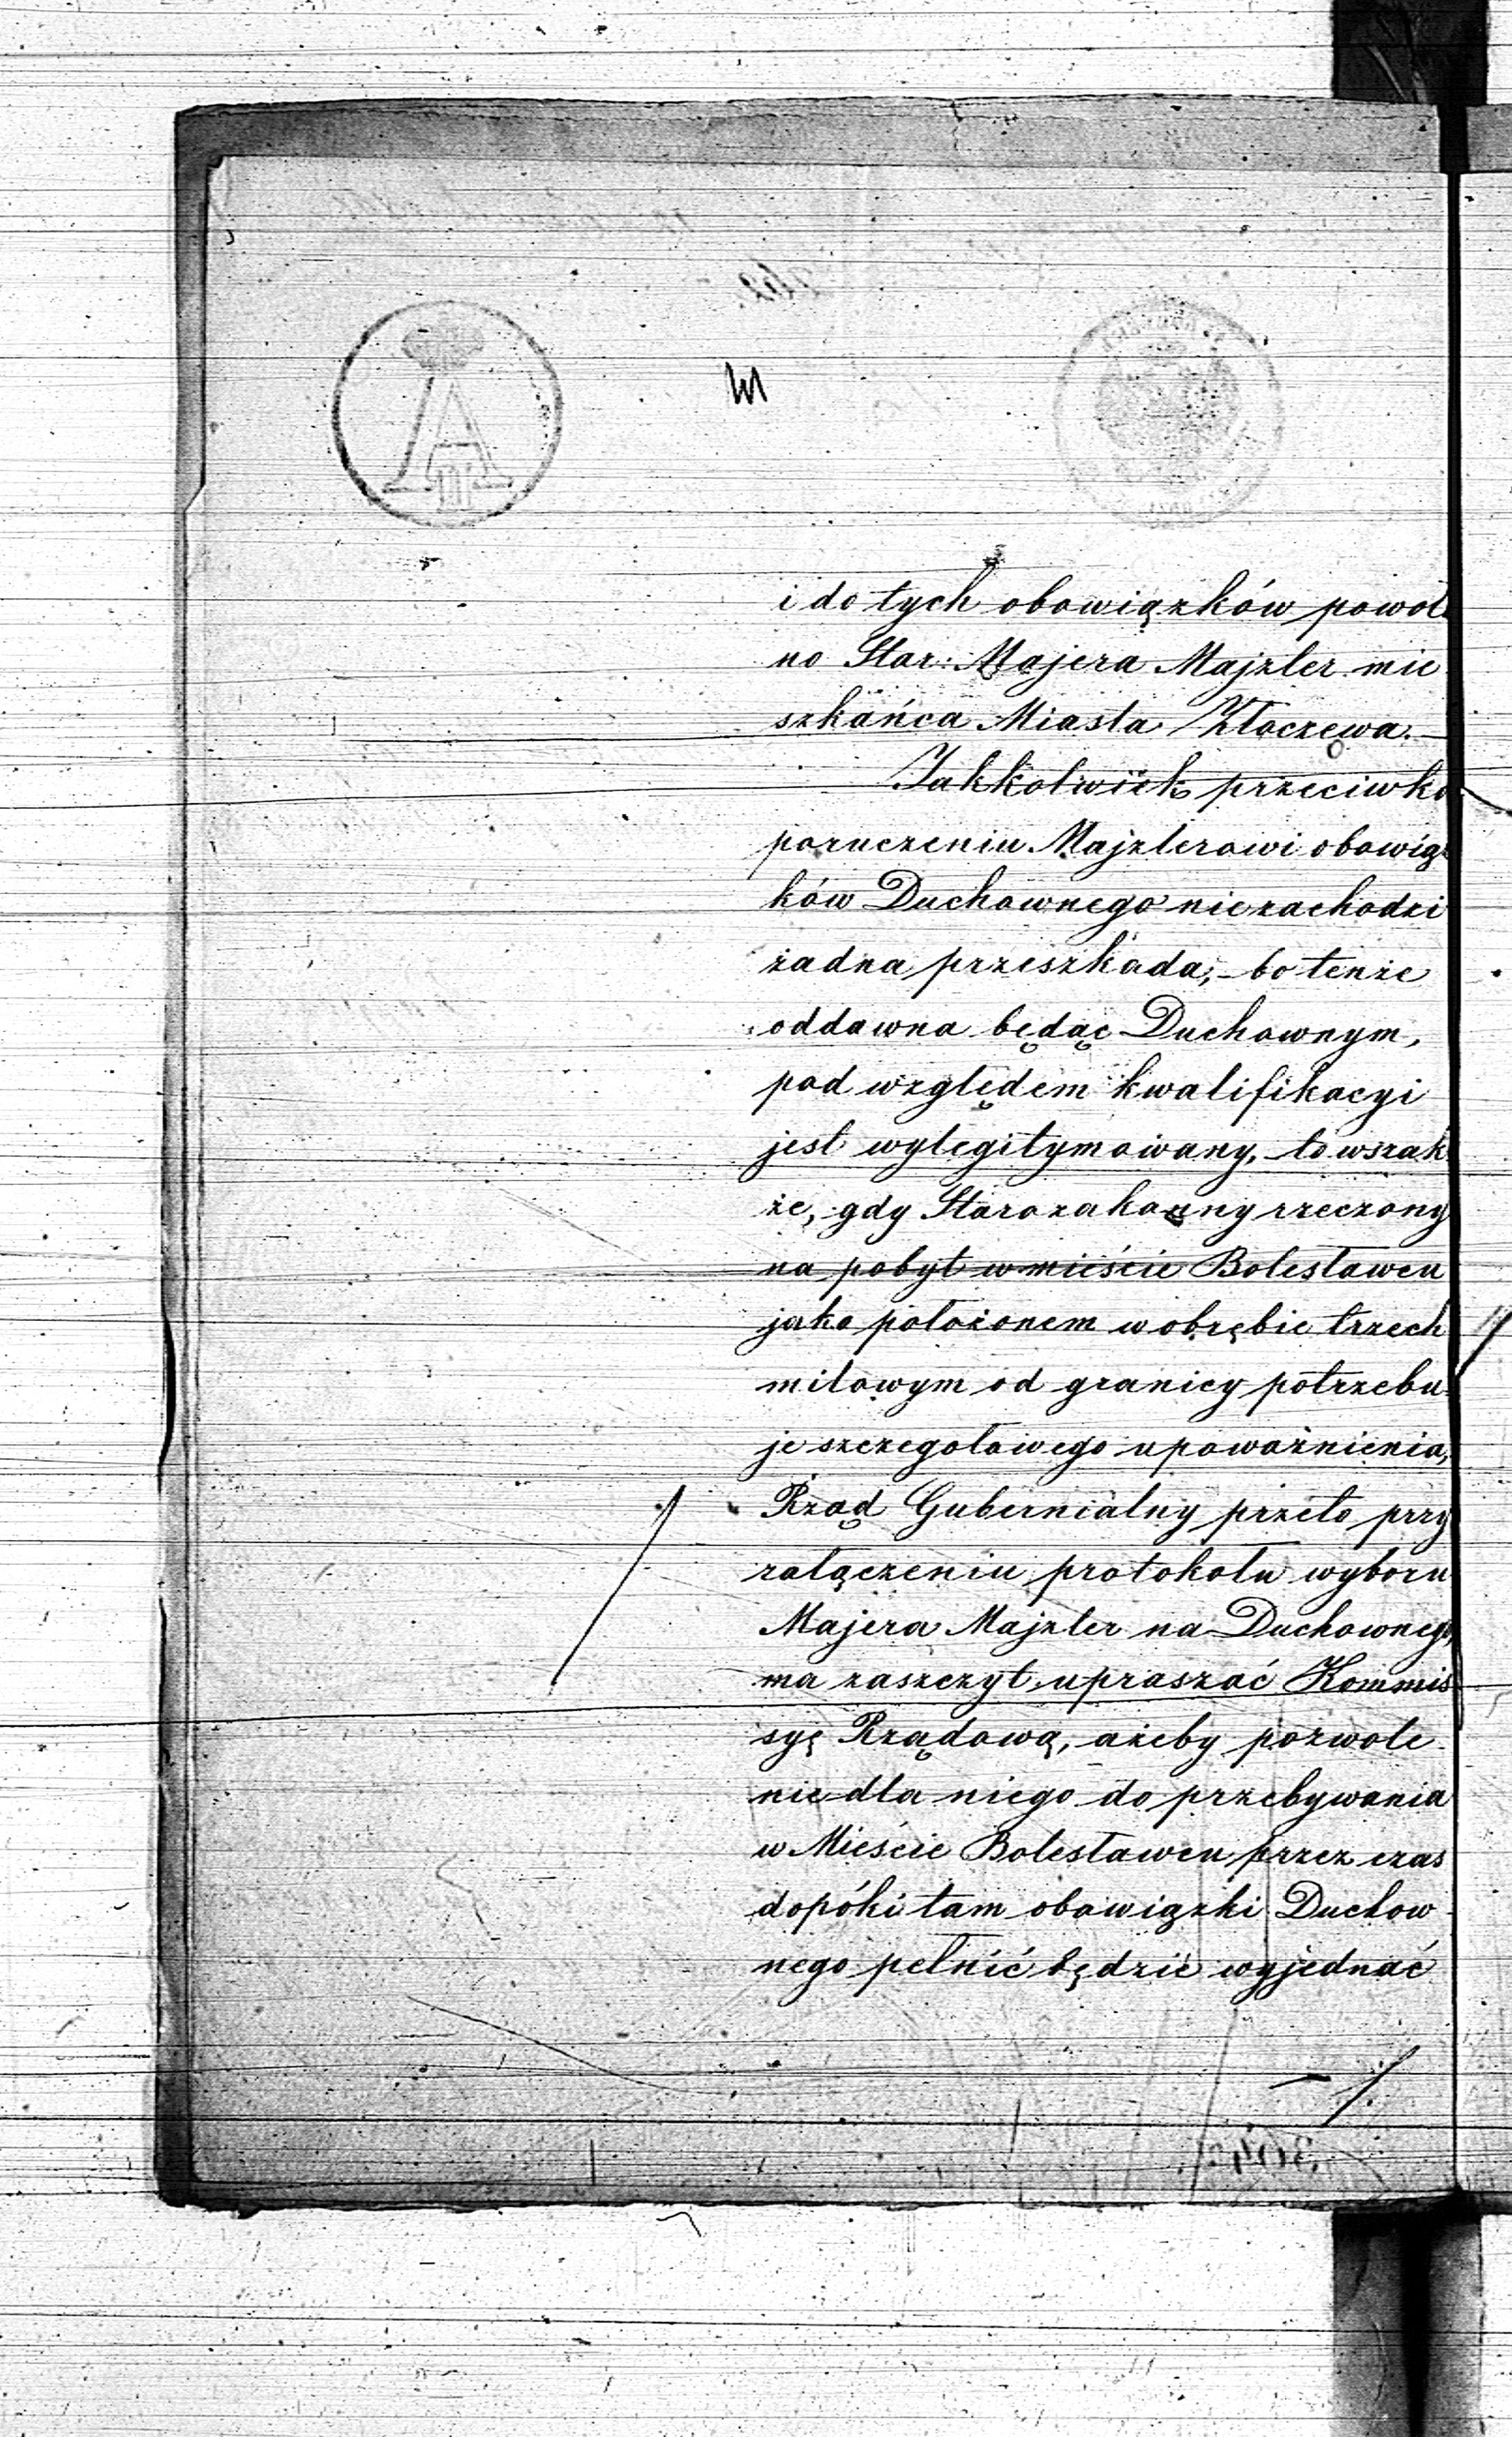 i do tych obowiązków powoła
no Star: Majera Majzler mie
szkańca Miasta Złoczewa.
Jakkolwiek przeciwko
poruczeniu Majzlerowi obowiąz
ków Duchownego nie zachodzi
żadna przeszkoda, bo tenże
oddawna będąc Duchownym,
pod względem kwalifikacyi
jest wylegitymowany, to wszak
że, gdy Starozakonny rzeczony
na pobyt w mieście Bolesławcu
jako położonem w obrębie trzech
milowym od granicy potrzebu
je szczegołowego upoważnienia,
Rząd Gubernialny przeto przy
załączeniu protokołu wyboru
Majera Majzler na Duchownego,
ma zaszczyt upraszać Kommis
syę Rządową, ażeby pozwole-
nie dla niego do przebywania
w Mieście Bolesławcu przez czas
dopóki tam obowiązki Duchow-
nego pełnić będzie wyjednać